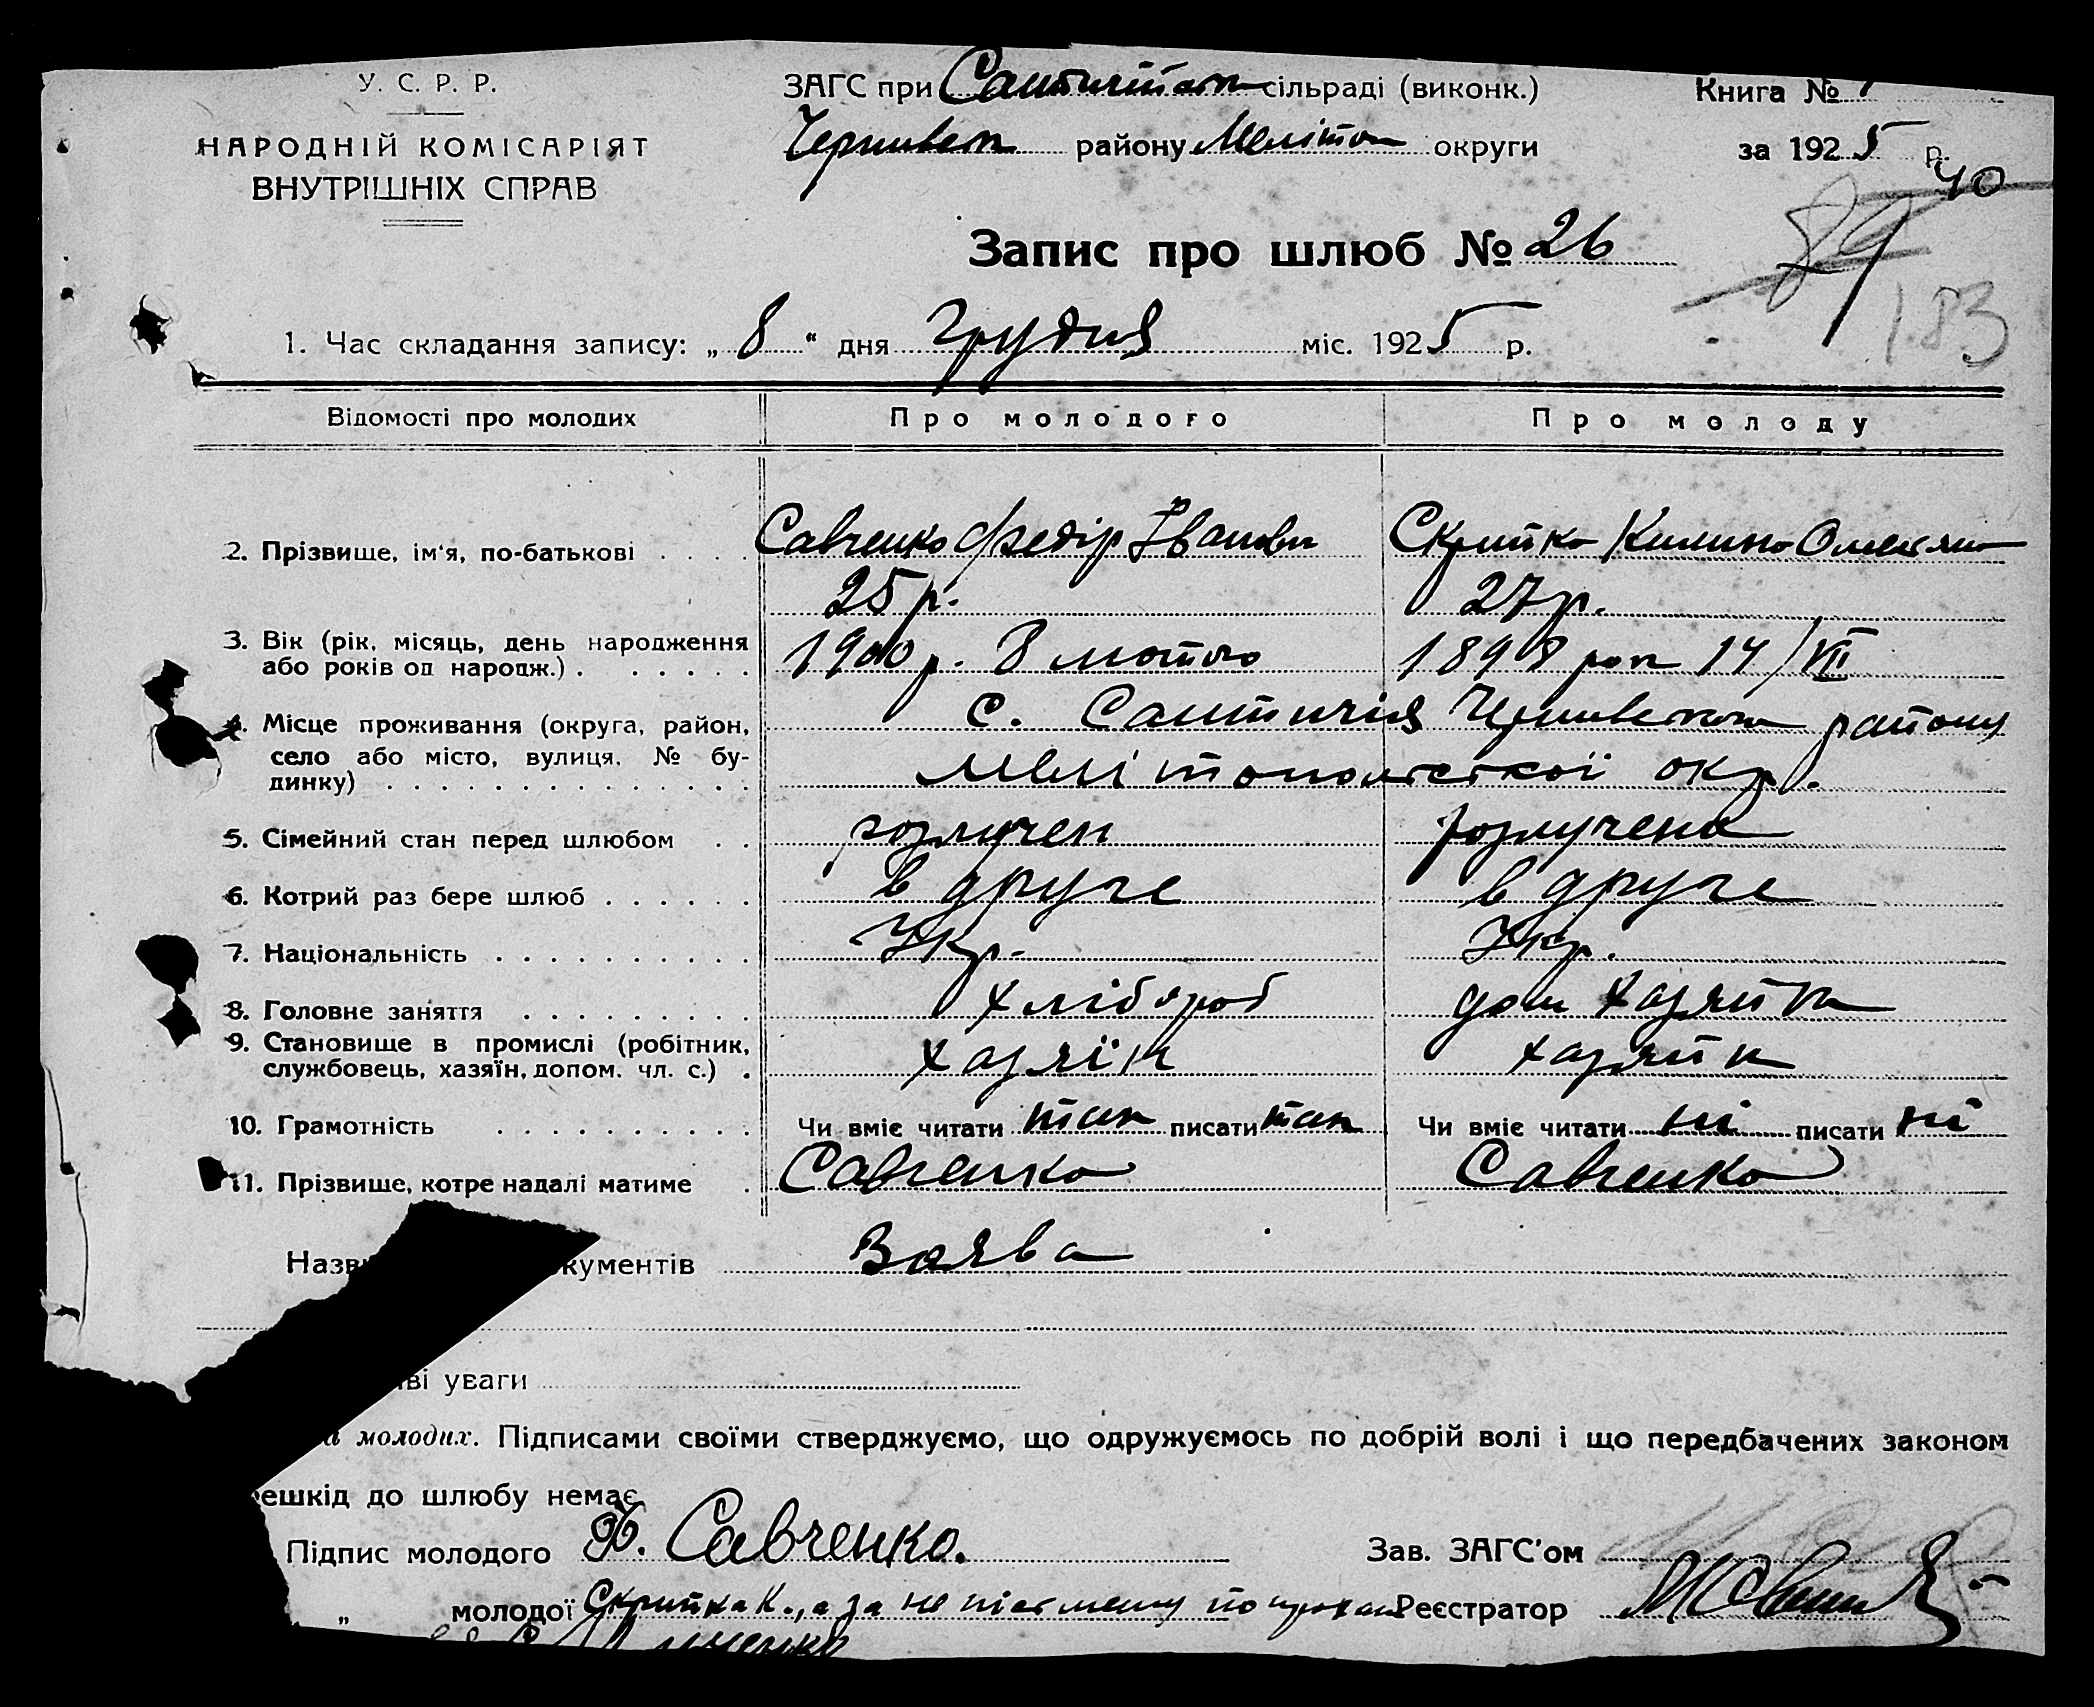 У. С. Р. Р.
НАРОДНІЙ КОМІСАРІЯТ
ВНУТРІШНІХ СПРАВ
ЗАГС при сільраді (виконк.)
района Меліто округи
Книга №
за 1925 р.
40
89
183
Запис про шлюб № 26
1. Час складання запису: „ 8 “ дня Грудня міс. 1925 р.
Відомості про молодих Про молодого Про молоду
2. Прізвище, ім'я, по-батькові Савченко Федір Іванов Скрипка Килина
25 р. 27 р.
3. Вік (рік, місяць, день народження 1900 р. 8 лютого 1898 рок 14/VII
або років од народж.)
4. Місце проживання (округа, район, с. району
село або місто, вулиця, № бу- Мелітопольської окр.
динку)
5. Сімейний стан перед шлюбом розлучен розлучена
6. Котрий раз бере шлюб в друге в друге
7. Національність Укр. Укр.
8. Головне заняття хлібороб дом хазяйк
9. Становище в промислі (робітник, хазяїн хазяйк
службовець, хазяїн, допом. чл. с.)
10. Грамотність Чи вміє читати так писати так Чи вміє читати ні писати ні
11. Прізвище, котре надалі матиме Савченко Савченко
Назв кументів Заява
ві уваги
а молодих. Підписами своїми стверджуємо, що одружуємось по добрій волі і що передбачених законом
ешкід до шлюбу немає
Підпис молодого Ф. Савченко. Зав. ЗАГС'ом
„ молодої Скрипка К., а за не письменну по Реєстратор